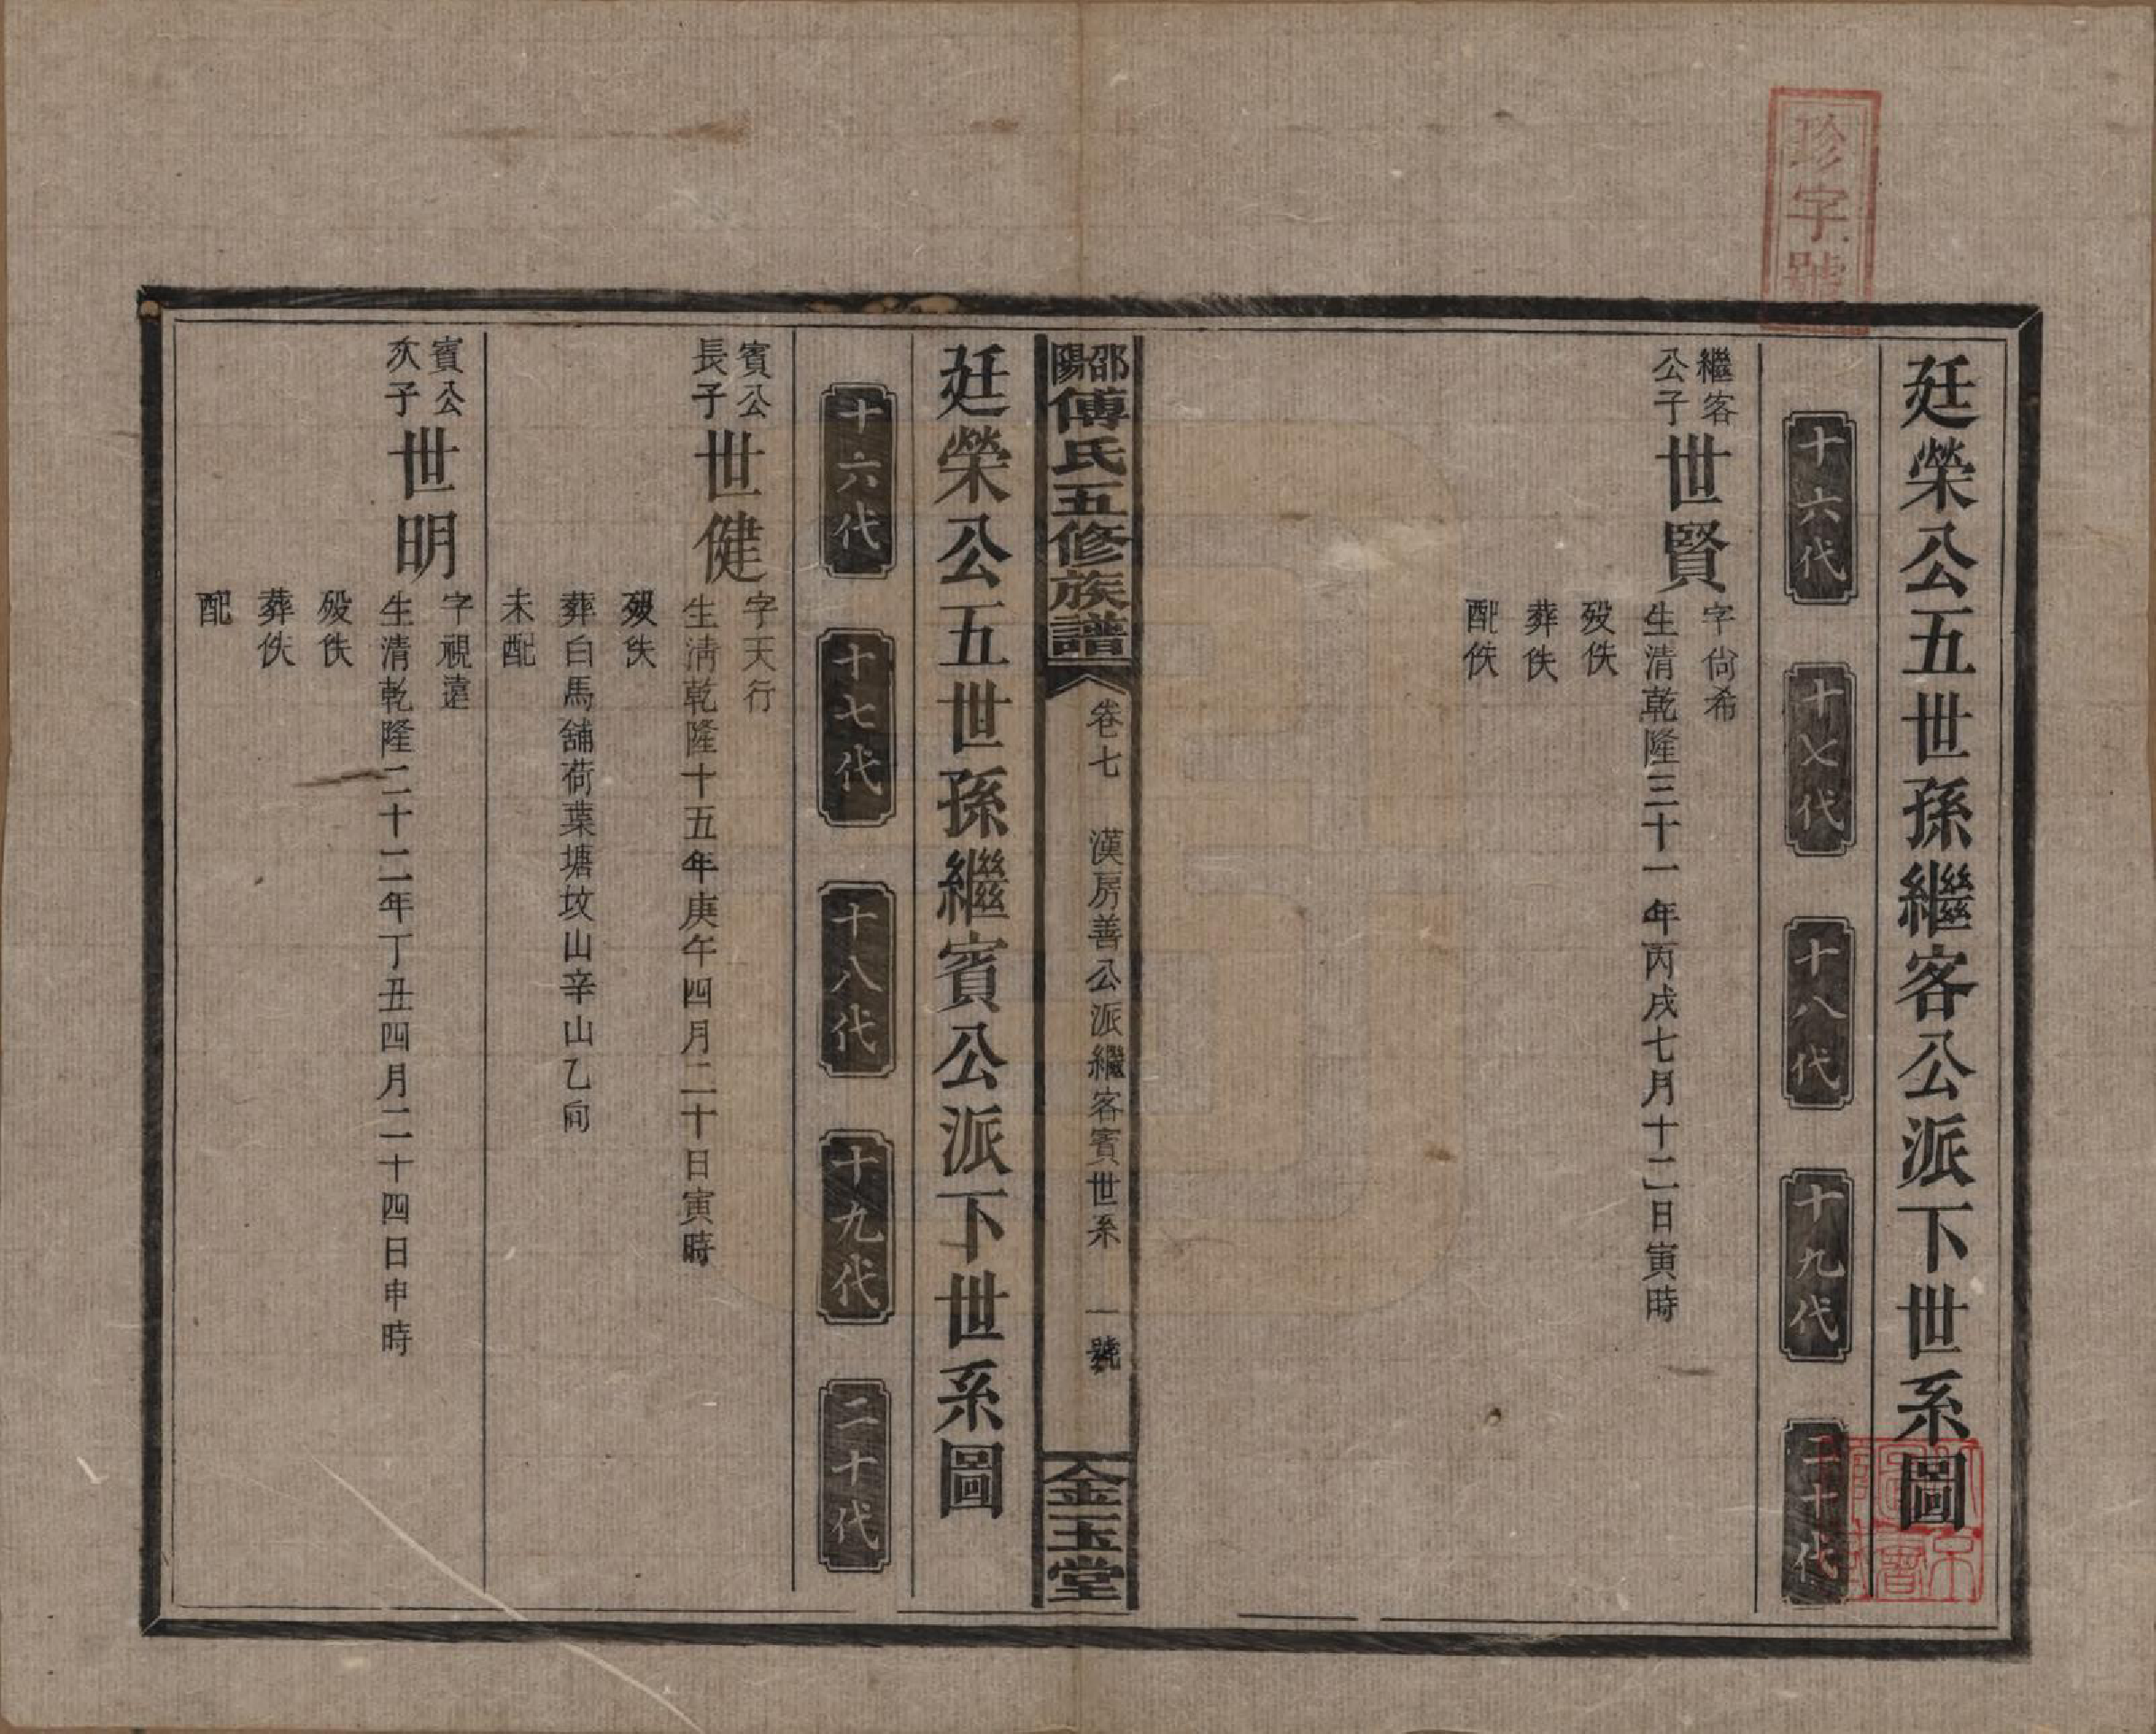 珍字號
廷榮公五世孫繼客公派下世系圖
十六代
十七代
十八代
十九代
二十代
繼客
公子
世賢
字尙希
生清乾隆三十一年丙戌七月十二日寅時
歿佚
葬佚
配佚
邵陽傅氏五修族譜
卷七
漢房善公派繼客賓世系
一號
金玉堂
廷榮公五世孫繼賓公派下世系圖
十六代
十七代
十八代
十九代
二十代
賓公
長子
世健
字天行
生淸乾隆十五年庚午四月二十日寅時
歿佚
葬白馬舖荷葉塘坟山辛山乙向
未配
賓公
次子
世明
字視遠
生清乾隆二十二年丁丑四月二十四日申時
歿佚
葬佚
配